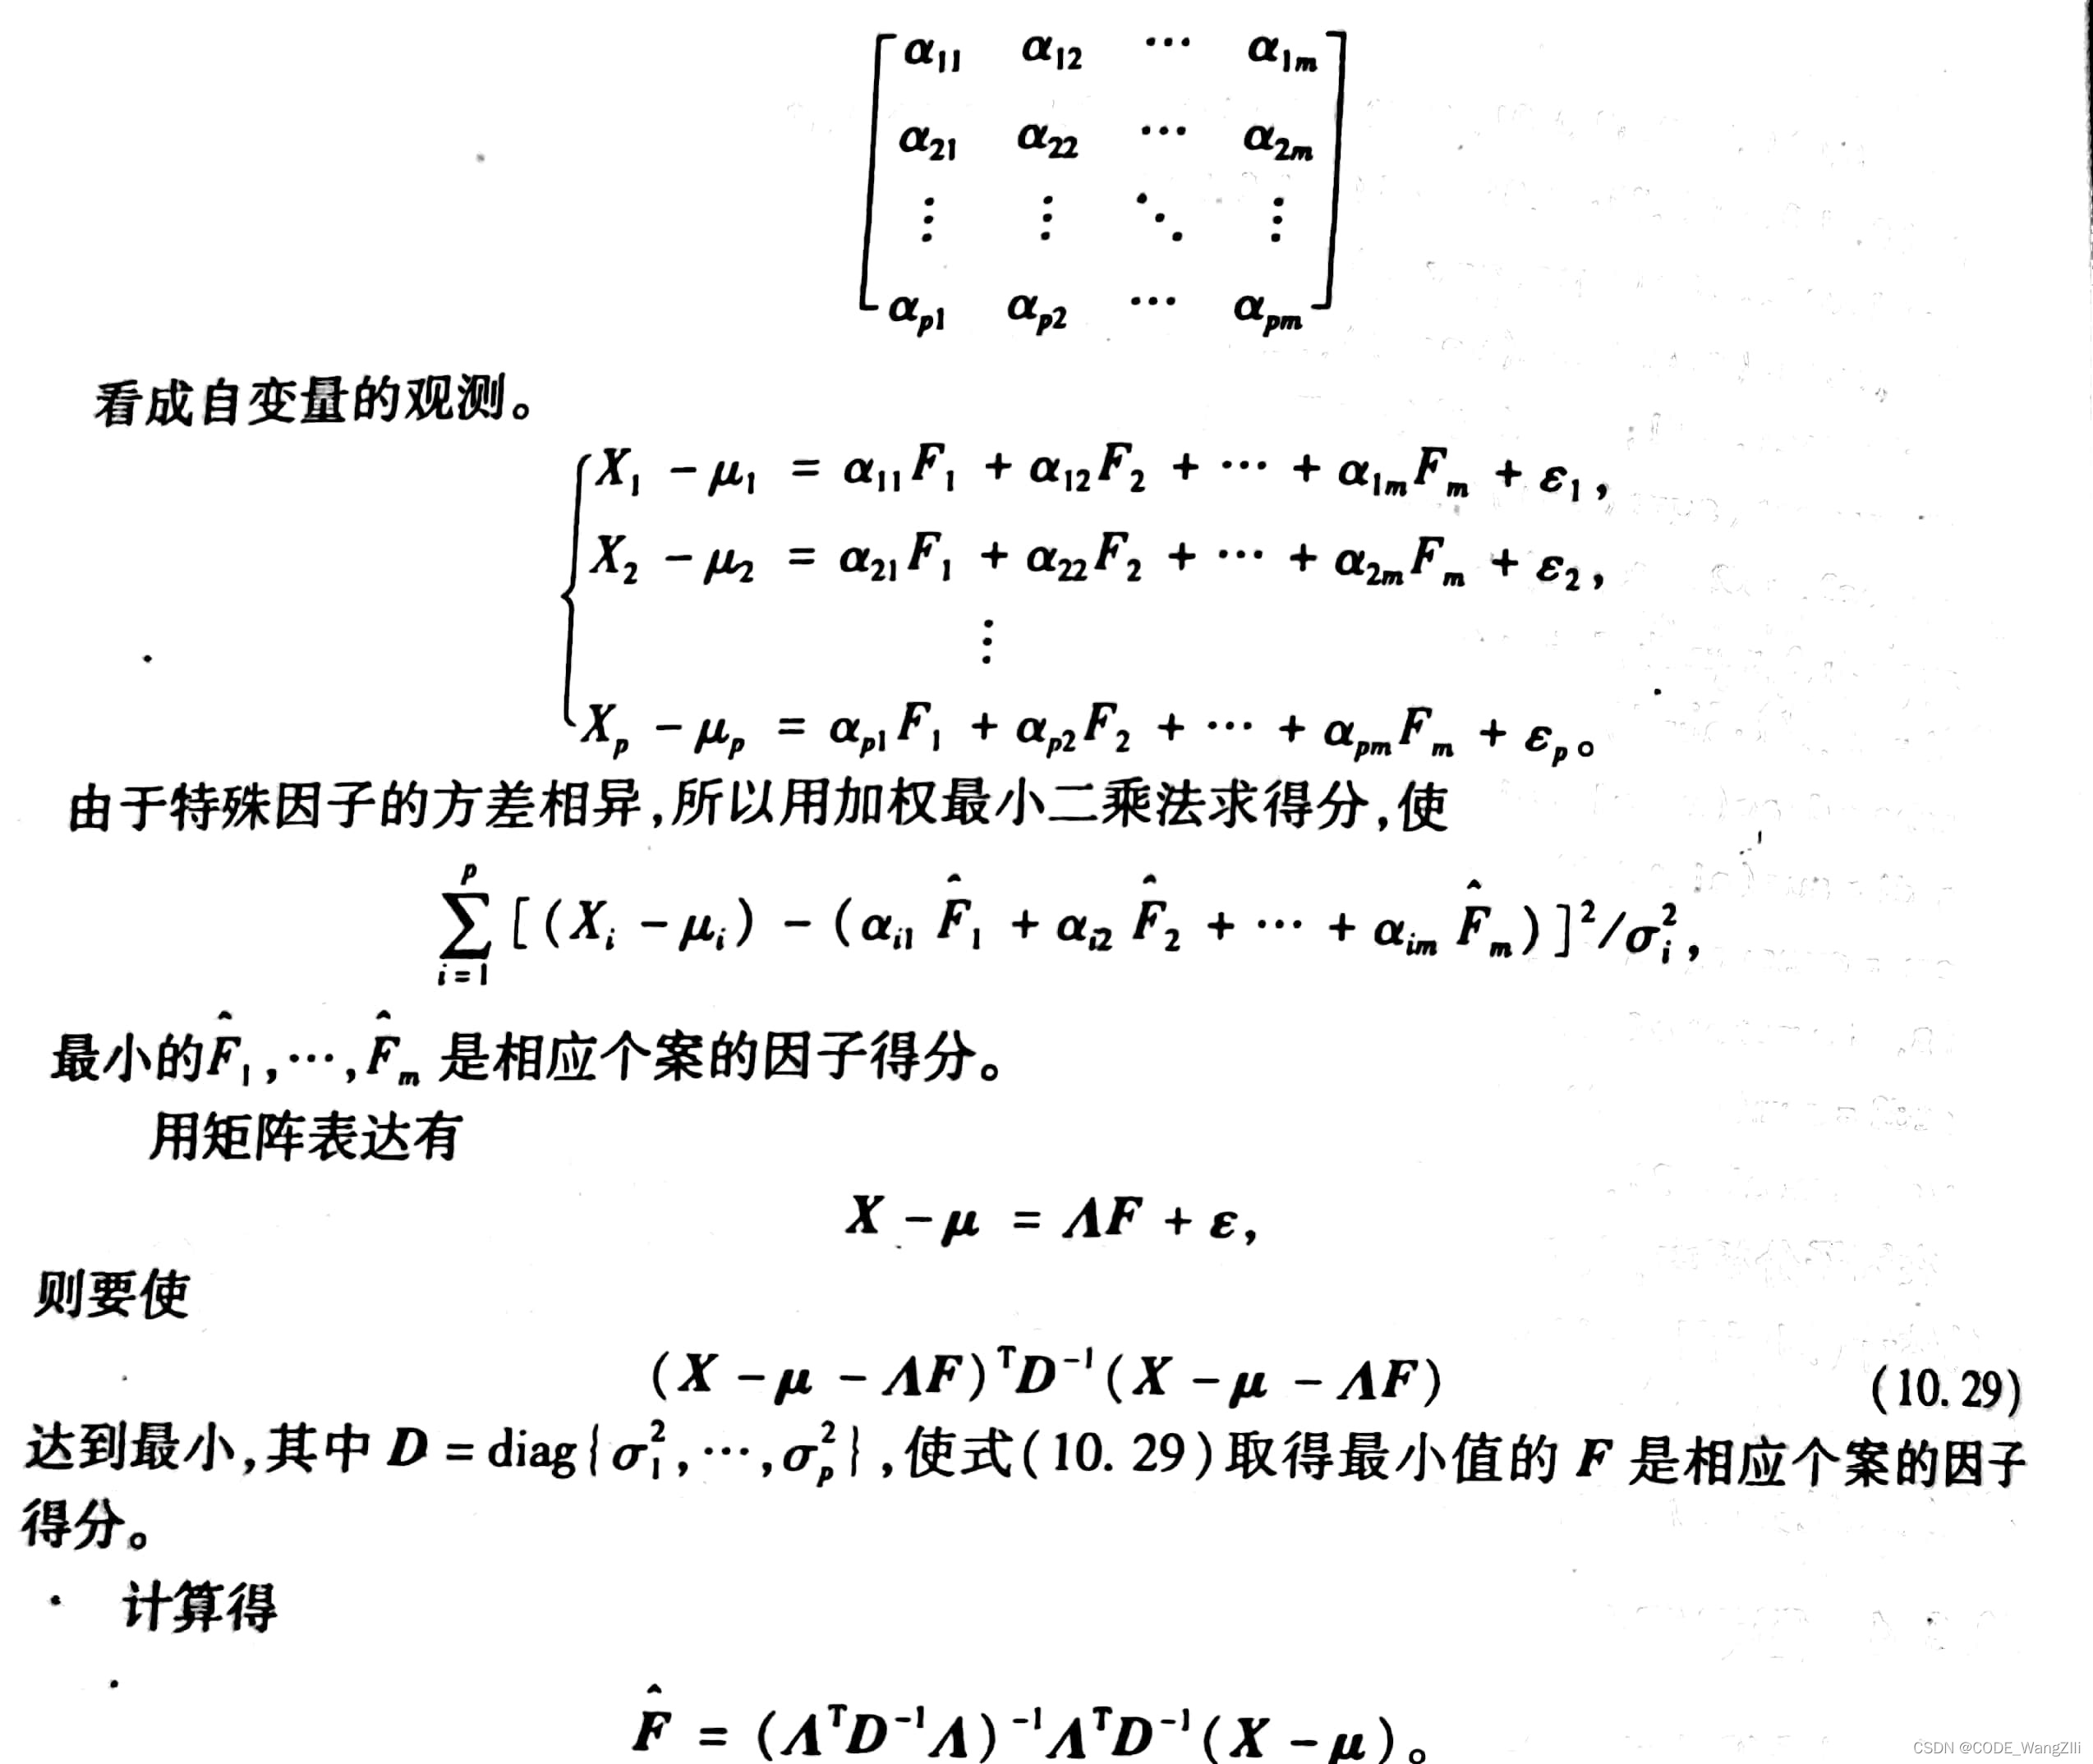 α₁₁ α₁₂ ⋯ α₁ₘ
α₂₁ α₂₂ ⋯ α₂ₘ
⋮ ⋮ ⋱ ⋮
αₚ₁ αₚ₂ ⋯ αₚₘ
看成自变量的观测。
X₁ − μ₁ = α₁₁F₁ + α₁₂F₂ + ⋯ + α₁ₘFₘ + ε₁,
X₂ − μ₂ = α₂₁F₁ + α₂₂F₂ + ⋯ + α₂ₘFₘ + ε₂,
⋮
Xₚ − μₚ = αₚ₁F₁ + αₚ₂F₂ + ⋯ + αₚₘFₘ + εₚ。
由于特殊因子的方差相异,所以用加权最小二乘法求得分,使
∑ᵢ₌₁ᵖ [(Xᵢ − μᵢ) − (αᵢ₁ F̂₁ + αᵢ₂ F̂₂ + ⋯ + αᵢₘ F̂ₘ)]²/σᵢ²,
最小的F̂₁,⋯,F̂ₘ 是相应个案的因子得分。
用矩阵表达有
X − μ = ΛF + ε,
则要使
(X − μ − ΛF)ᵀD⁻¹(X − μ − ΛF) (10.29)
达到最小,其中 D = diag{σ₁²,⋯,σₚ²},使式(10.29)取得最小值的 F 是相应个案的因子
得分。
计算得
F̂ = (ΛᵀD⁻¹Λ)⁻¹ΛᵀD⁻¹(X − μ)。
CSDN @CODE_WangZIli